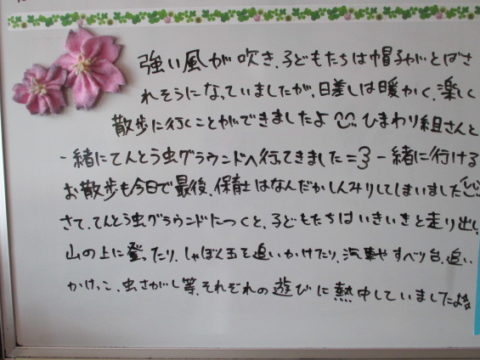 強い風が吹き、子どもたちは帽子がとばさ
れそうになっていましたが、日差しは暖かく、楽しく
散歩に行くことができましたよ ひまわり組さんと
一緒にてんとう虫グラウンドへ行てきました=3 一緒に行ける
お散歩も今日で最後、保育士はなんだかしんみりしてしまいました
さて、てんとう虫グラウンドにつくと、子どもたちはいきいきと走り出し、
山の上に登ったり、しゃぼん玉を追いかけたり、汽車やすべり台、追い
かけっこ、虫さがし等、それぞれの遊びに熱中していましたよ